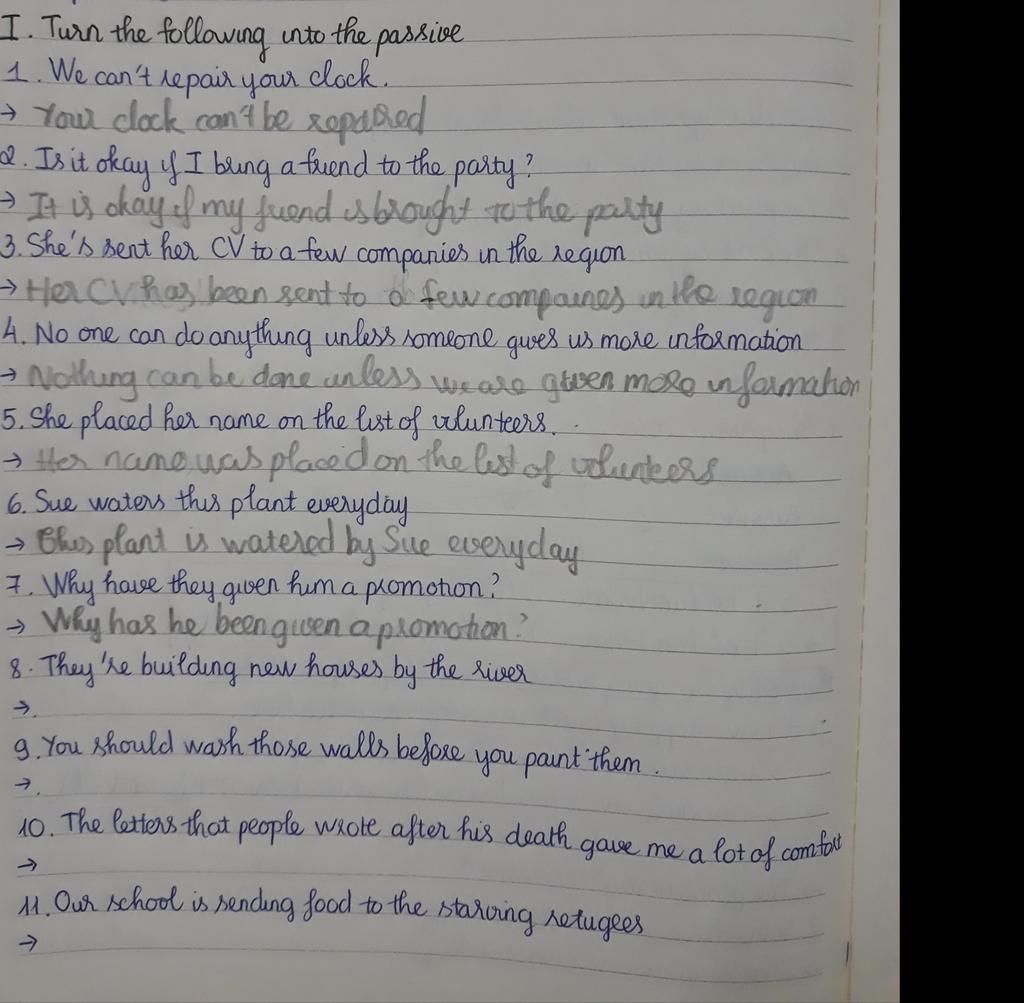 I. Turn the following into the passive
1. We can't repair your clock.
→ Your clock can't be repaired
2. Is it okay if I bring a friend to the party?
→ It is okay if my friend is brought to the party
3. She's sent her CV to a few companies in the region
→ Her CV has been sent to a few compaines in the region
4. No one can do anything unless someone gives us more information
→ Nothing can be done unless we are given more information
5. She placed her name on the list of volunteers.
→ Her name was placed on the list of volunteers
6. Sue waters this plant everyday
→ This plant is watered by Sue everyday
7. Why have they given him a promotion?
→ Why has he been given a promotion?
8. They're building new houses by the river
→.
9. You should wash those walls before you paint them.
→.
10. The letters that people wrote after his death gave me a lot of comfort
→
11. Our school is sending food to the starving refugees
→